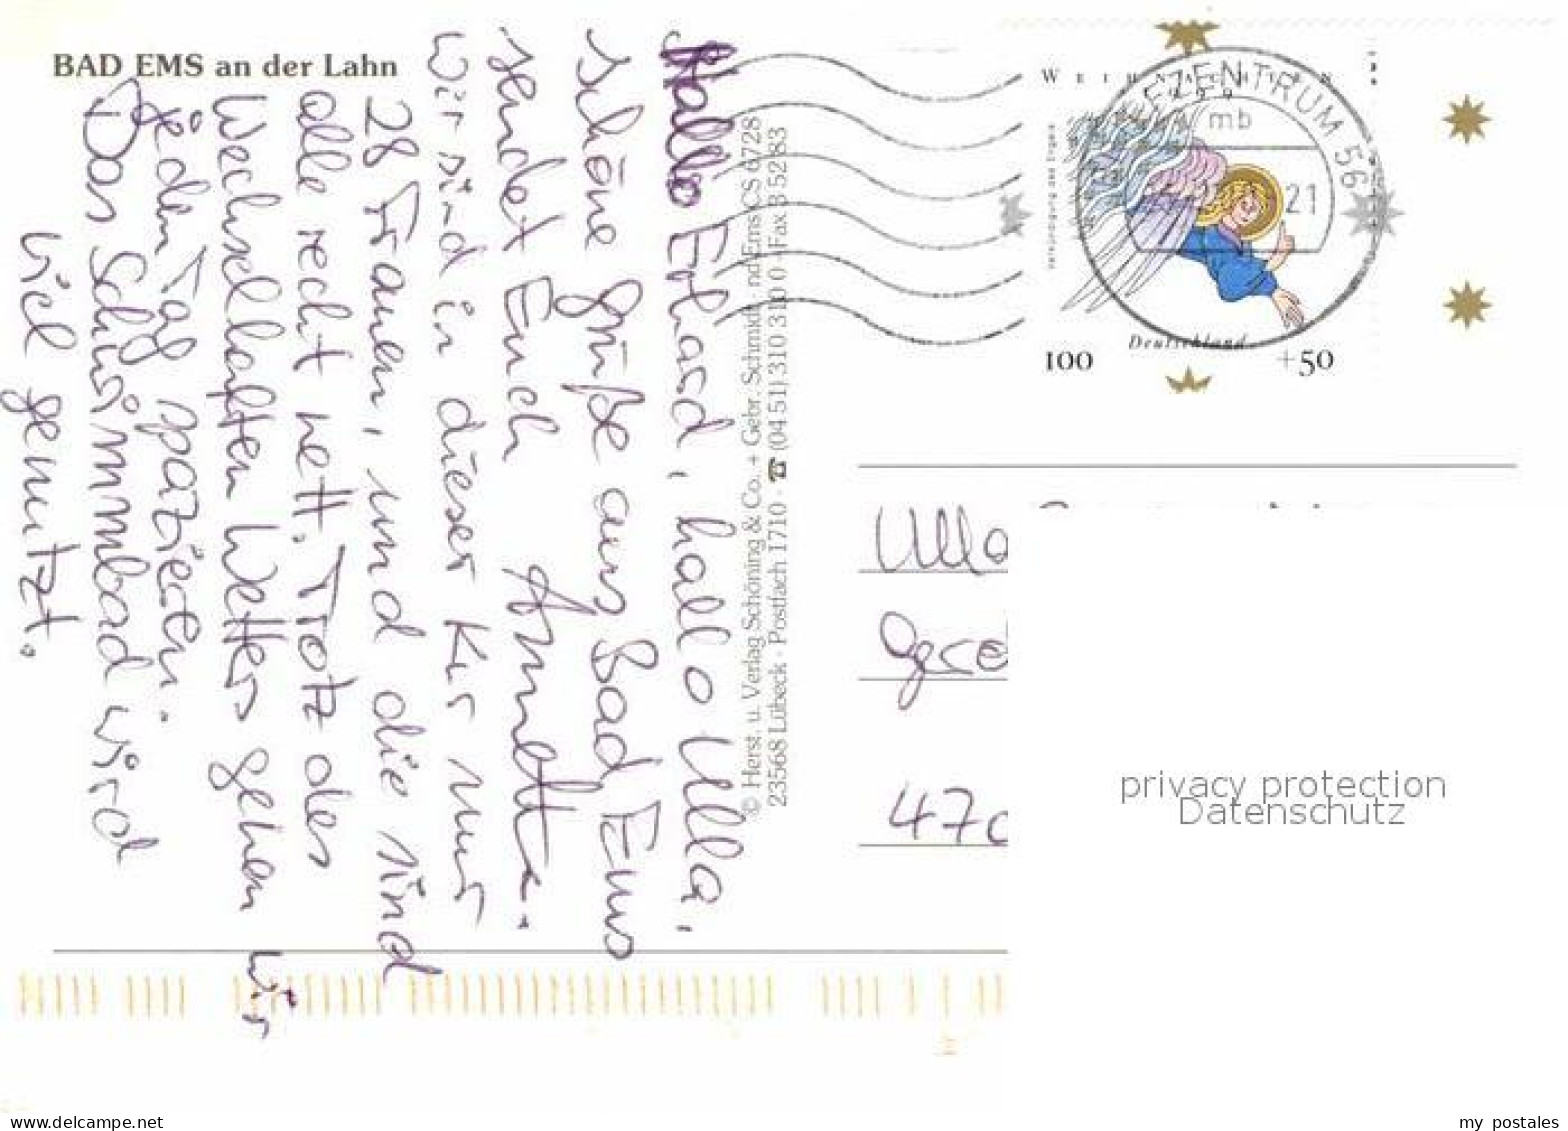 BAD EMS an der Lahn
Hallo Erhard, hallo Ulla,
schöne Grüße aus Bad Ems
sendet Euch Annette.
Wir sind in dieser Kur nur
28 Frauen, und die sind
alle recht nett. Trotz des
Wechselhaften Wetters gehen wir
jeden Tag spazieren.
Das Schwimmbad wird
viel genutzt.
© Herst. u. Verlag Schöning & Co. + Gebr. Schmidt nd Ems CS 6728
23568 Lübeck · Postfach 1710 · ☎ (04 51) 310 310 0 · Fax 3 5283
WEIHNACHTEN
Verkündigung des Engels
EZENTRUM 56
mb
21
Deutschland
100 +50
Ulla
47
privacy protection
Datenschutz
my postales